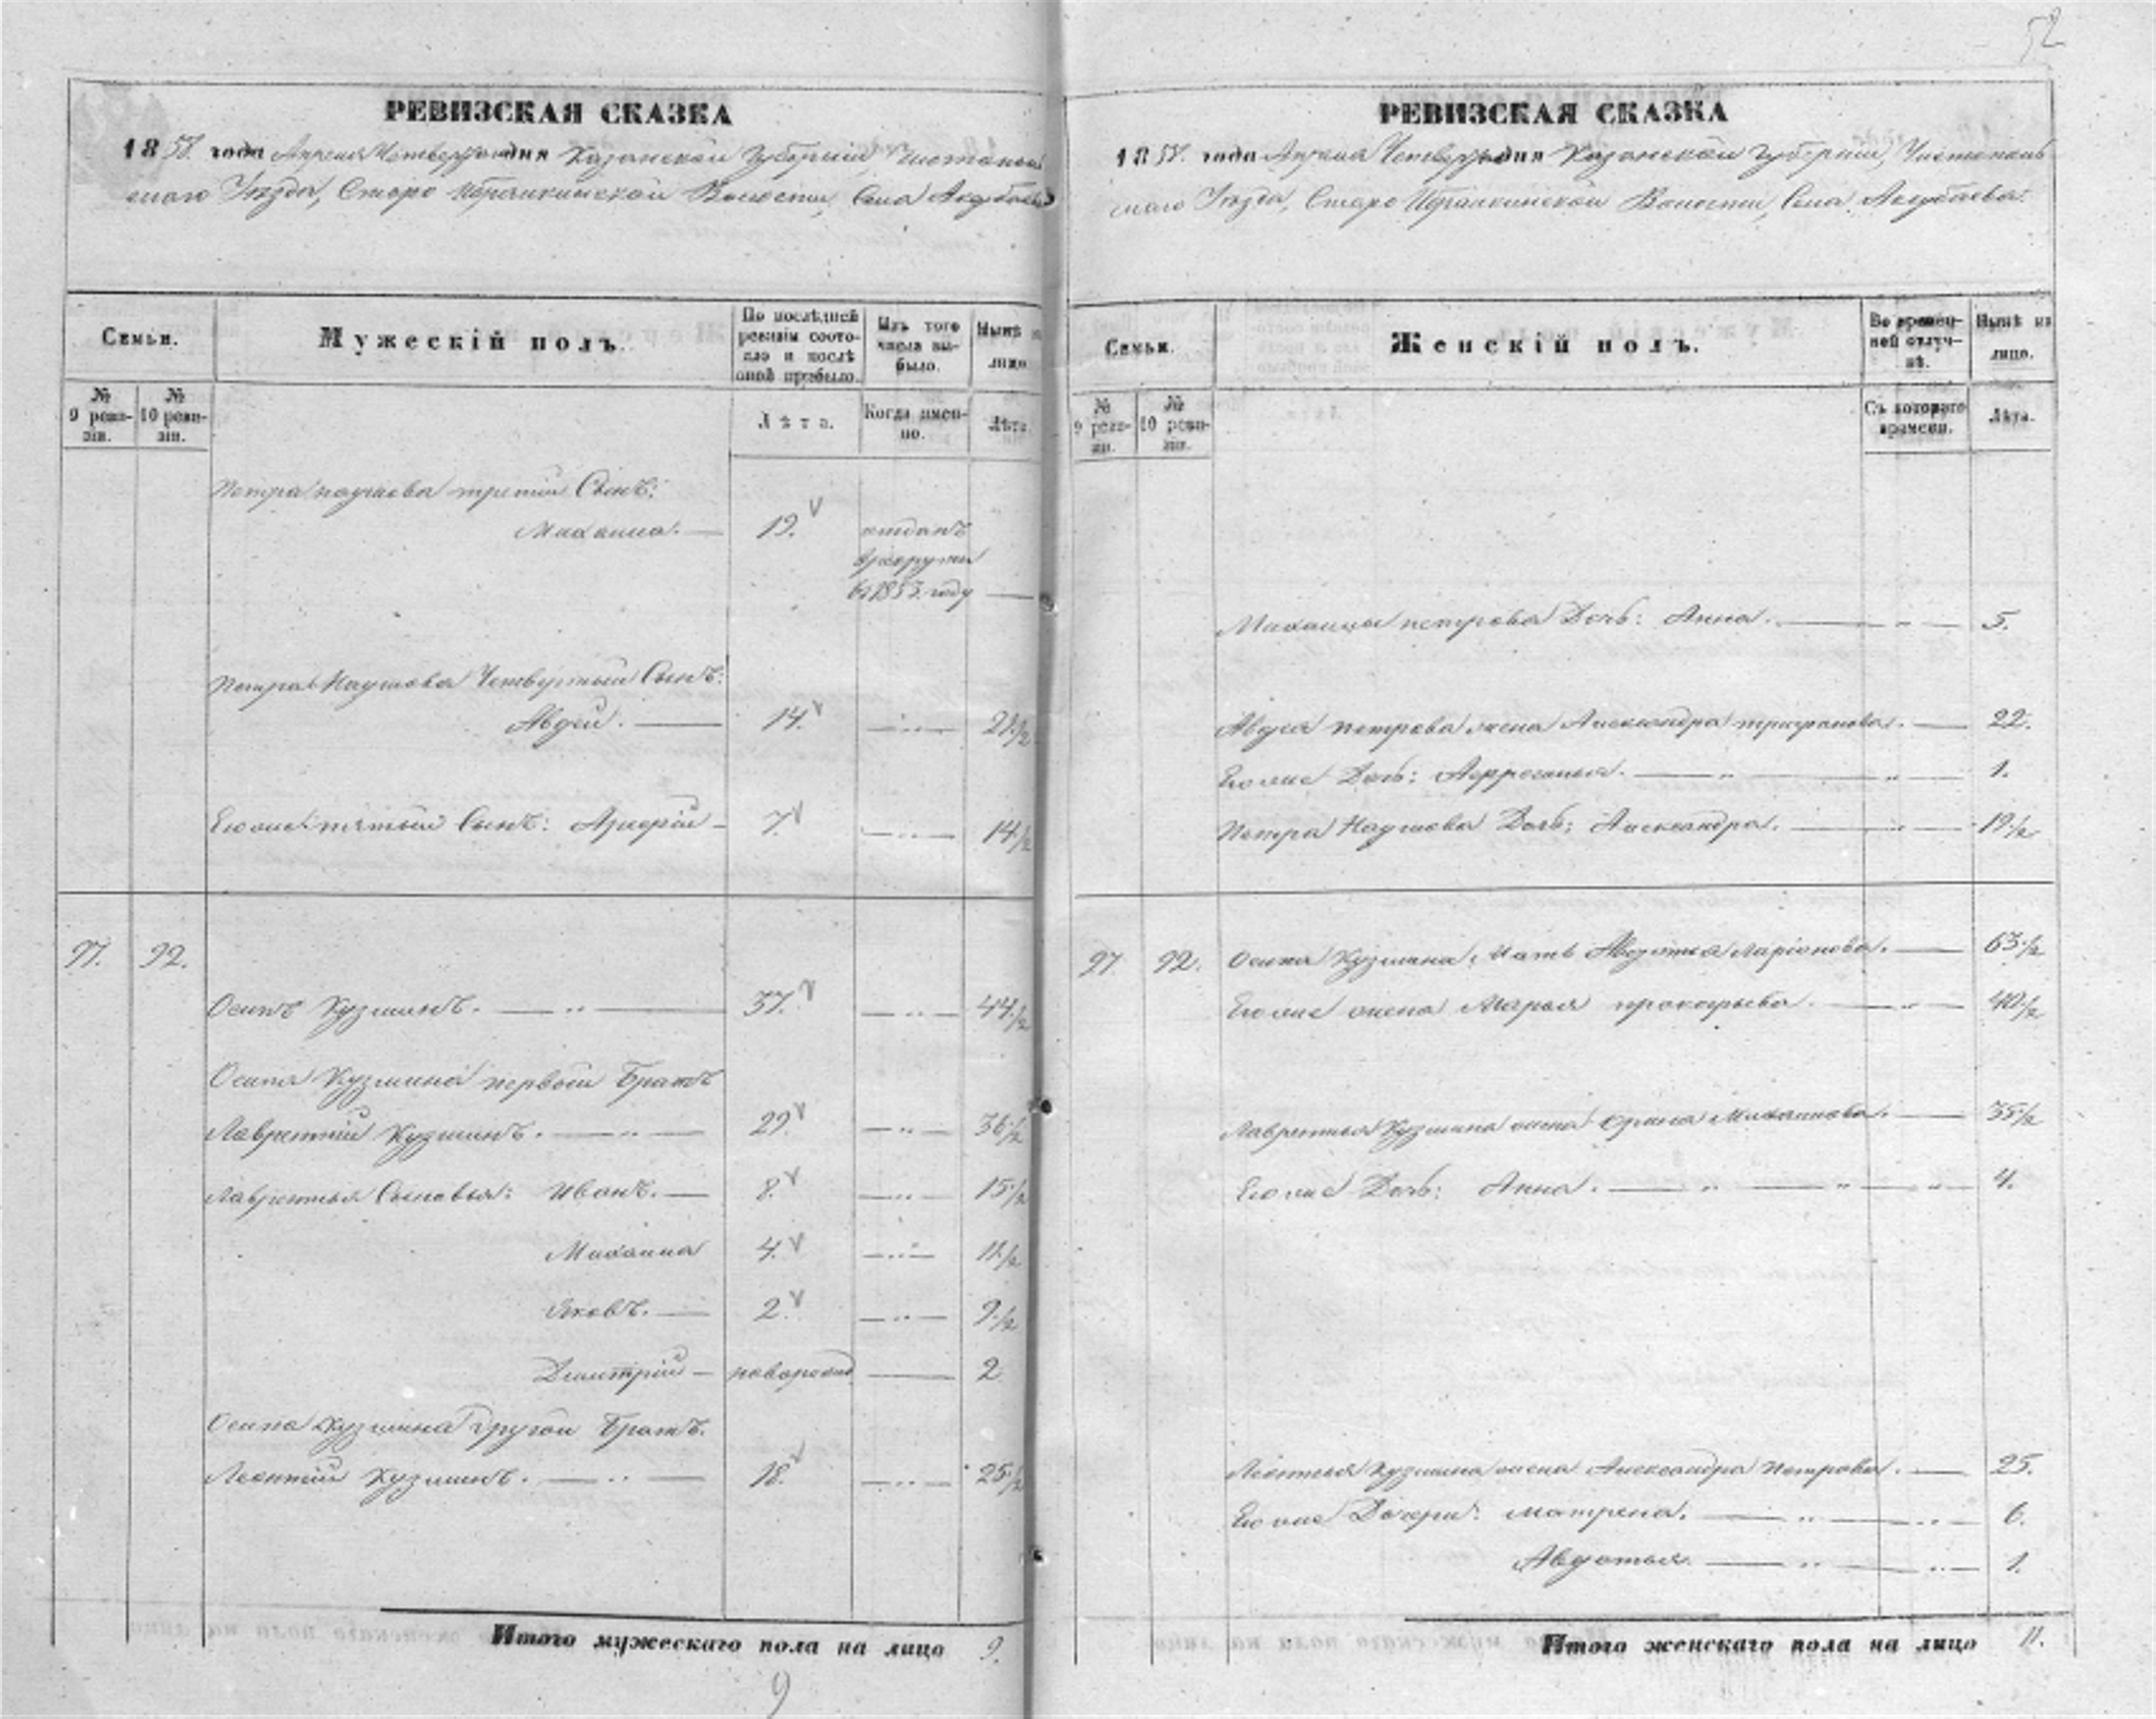 52
РЕВИЗСКАЯ СКАЗКА
1858. года Апреля Четвертаго дня Казанской Губерніи, Чистополь
скаго Уѣзда, Старо Ибрайкинской Волости, Села Аксубаева
Семьи.
Мужескій полъ.
По послѣдней ревизіи состояло и послѣ оной прибыло.
Изъ того числа выбыло.
Нынѣ на лицо.
№ 9 ревизіи.
№ 10 ревизіи.
Лѣта.
Когда именно.
Лѣта.
Петра Наумова третій Сынъ:
Михаила. 19. отданъ
в рекруты
в 1853. году
Петра Наумова Четвертый Сынъ:
Авдей. 14. 21 1/2
Его же пятый Сынъ: 7. 14 1/2
97. 92.
Осипъ Кузминъ. 37. 44 1/2
Осипа Кузмина первой Братъ
Лаврентій Кузминъ. 29. 36 1/2
Лаврентья Сыновья: Иванъ. 8. 15 1/2
Михаила 4. 11 1/2
Яковъ. 2. 9 1/2
Дмитрій новорожд 2
Осипа Кузмина другой Братъ.
Леонтій Кузминъ. 18. 25 1/2
Итого мужескаго пола на лицо 9.
9
РЕВИЗСКАЯ СКАЗКА
1858. года Апреля Четвертаго дня Казанской Губерніи, Чистополь
скаго Уѣзда, Старо Ибрайкинской Волости, Села Аксубаева.
Семьи.
Женскій полъ.
Во временной отлучкѣ.
Нынѣ на лицо.
№ 9 ревизіи.
№ 10 ревизіи.
Съ котораго времени.
Лѣта.
Михайлы петрова Дочь: Анна. 5.
Авдея петрова жена Александра трифанова. 22.
Его же Дочь: 1.
Петра Наумова Дочь: Александра. 19 1/2
97. 92. Осипа Кузмина, Мать Авдотья Ларіонова. 63 1/2
Его же жена Марья прокофьева. 40 1/2
Лаврентья Кузмина жена Михайлова. 35 1/2
Его же Дочь: Анна. 4.
Леонтья Кузмина жена Александра Петрова. 25.
Его же Дочери: матрена. 6.
Авдотья 1.
Итого женскаго пола на лицо 11.